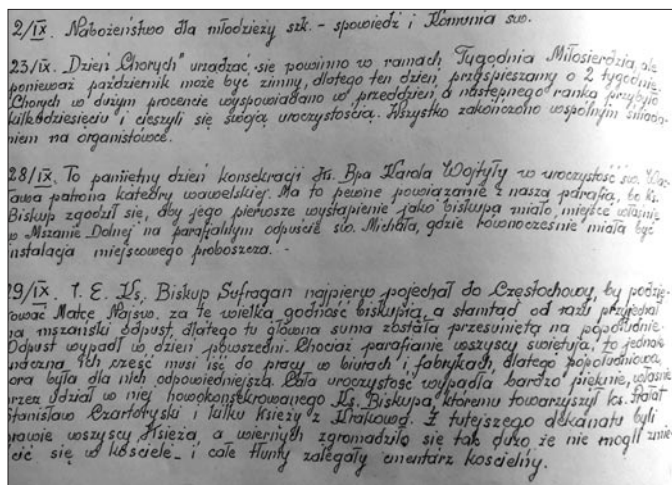 2/IX. Nabożeństwo dla młodzieży szk. - spowiedź i Komunia św.
23/IX. „Dzień Chorych" urządzać się powinno w ramach Tygodnia Miłosierdzia, ale
ponieważ październik może być zimny, dlatego ten dzień przyspieszamy o 2 tygodnie.
Chorych w dużym procencie wyspowiadano w przeddzień, a następnego ranka przybyło
kilkudziesięciu i cieszyli się swoją uroczystością. Wszystko zakończono wspólnym śniada-
niem na organistówce.
28/IX. To pamiętny dzień konsekracji Ks. Bpa Karola Wojtyły w uroczystość św. Wa-
ława patrona katedry wawelskiej. Ma to pewne powiązanie z naszą parafią, bo ks.
Biskup zgodził się, aby jego pierwsze wystąpienie jako biskupa miało miejsce właśnie
w Mszanie Dolnej na parafialnym odpuście św. Michała, gdzie równocześnie miała być
instalacja miejscowego proboszcza. -
29/IX. J. E. Ks. Biskup Sufragan najpierw pojechał do Częstochowy, by podzię-
kować Matce Najśw. za tę wielką godność biskupią, a stamtąd od razu przyjechał
na mszański odpust, dlatego tu główna suma została przesunięta na popołudnie.
Odpust wypadł w dzień powszedni. Chociaż parafianie wszyscy świętują, to jednak
znaczna ich część musi iść do pracy w biurach i fabrykach, dlatego popołudniowa
pora była dla nich odpowiedniejsza. Cała uroczystość wypadła bardzo pięknie, właśnie
przez udział w niej nowokonsekrowanego Ks. Biskupa, któremu towarzyszył ks. Prałat
Stanisław Czartoryski i kilku księży z Krakowa. Z tutejszego dekanatu byli
prawie wszyscy Księża, a wiernych zgromadziło się tak dużo że nie mogli zmie-
ścić się w kościele - i całe tłumy zalegały cmentarz kościelny.